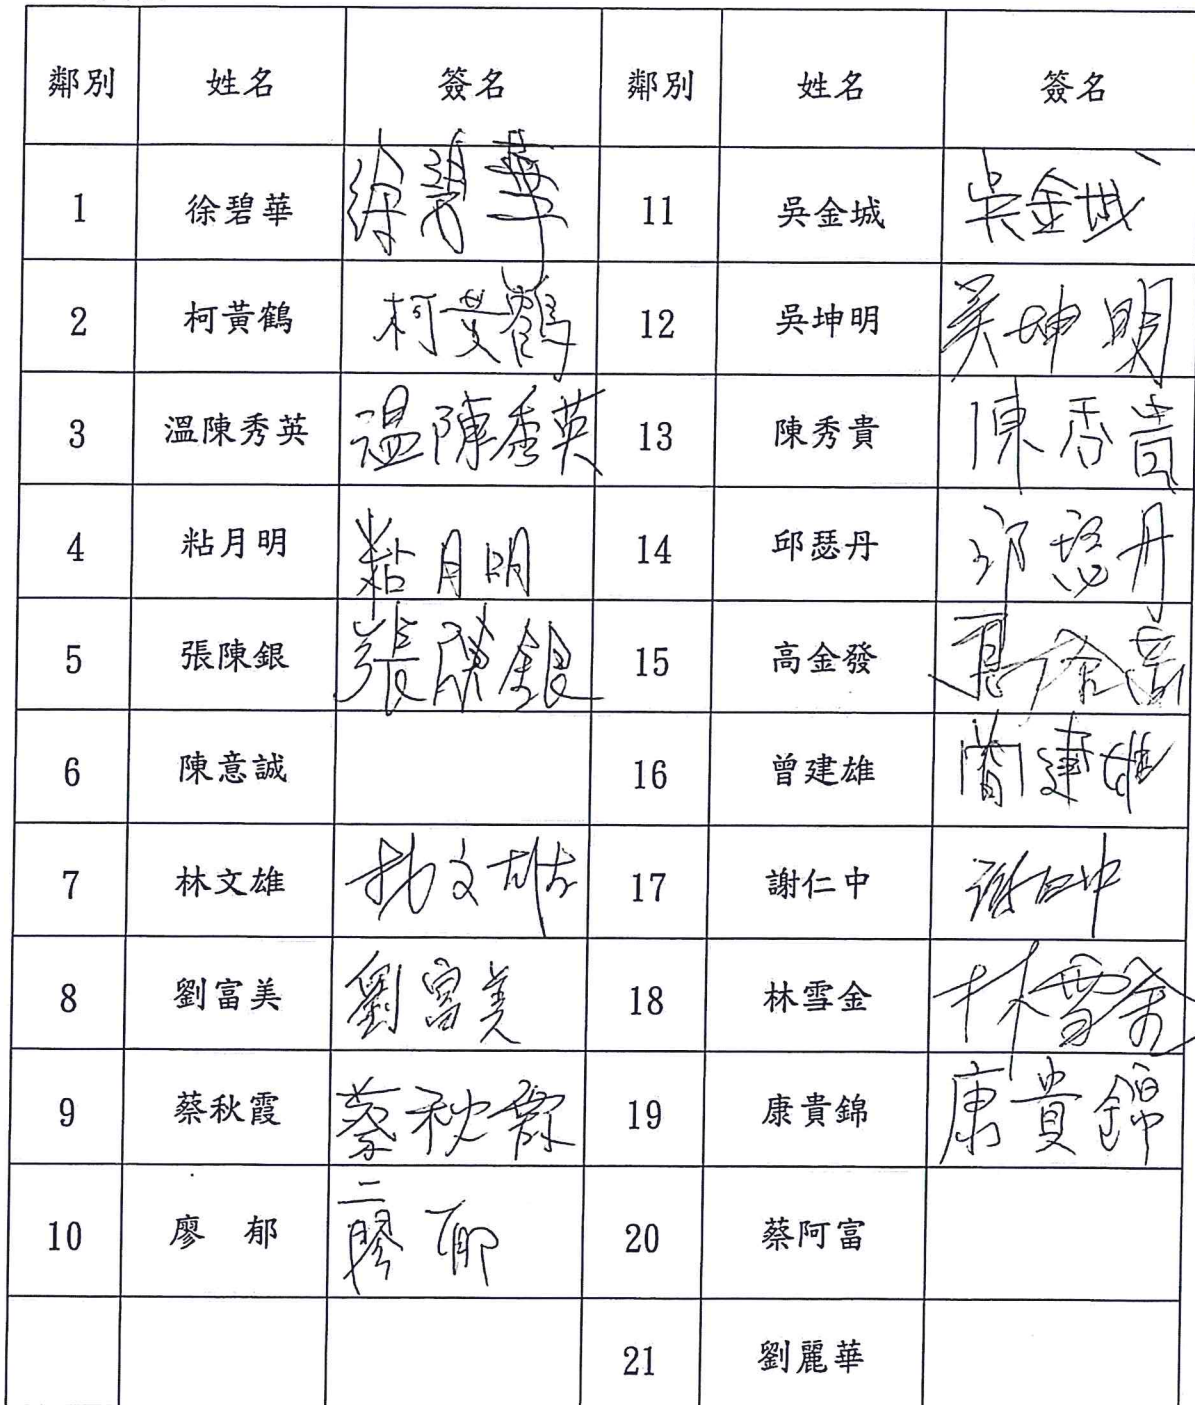 鄰別 姓名 簽名 鄰別 姓名 簽名
1 徐碧華 徐碧華 11 吳金城 吳金城
2 柯黃鶴 柯黃鶴 12 吳坤明 吳坤明
3 溫陳秀英 溫陳秀英 13 陳秀貴 陳秀貴
4 粘月明 粘月明 14 邱瑟丹 邱瑟丹
5 張陳銀 張陳銀 15 高金發 高金
6 陳意誠 16 曾建雄 建雄
7 林文雄 林文雄 17 謝仁中 謝仁中
8 劉富美 劉富美 18 林雪金 林雪金
9 蔡秋霞 蔡秋霞 19 康貴錦 康貴錦
10 廖 郁 二 廖 郁 20 蔡阿富
21 劉麗華